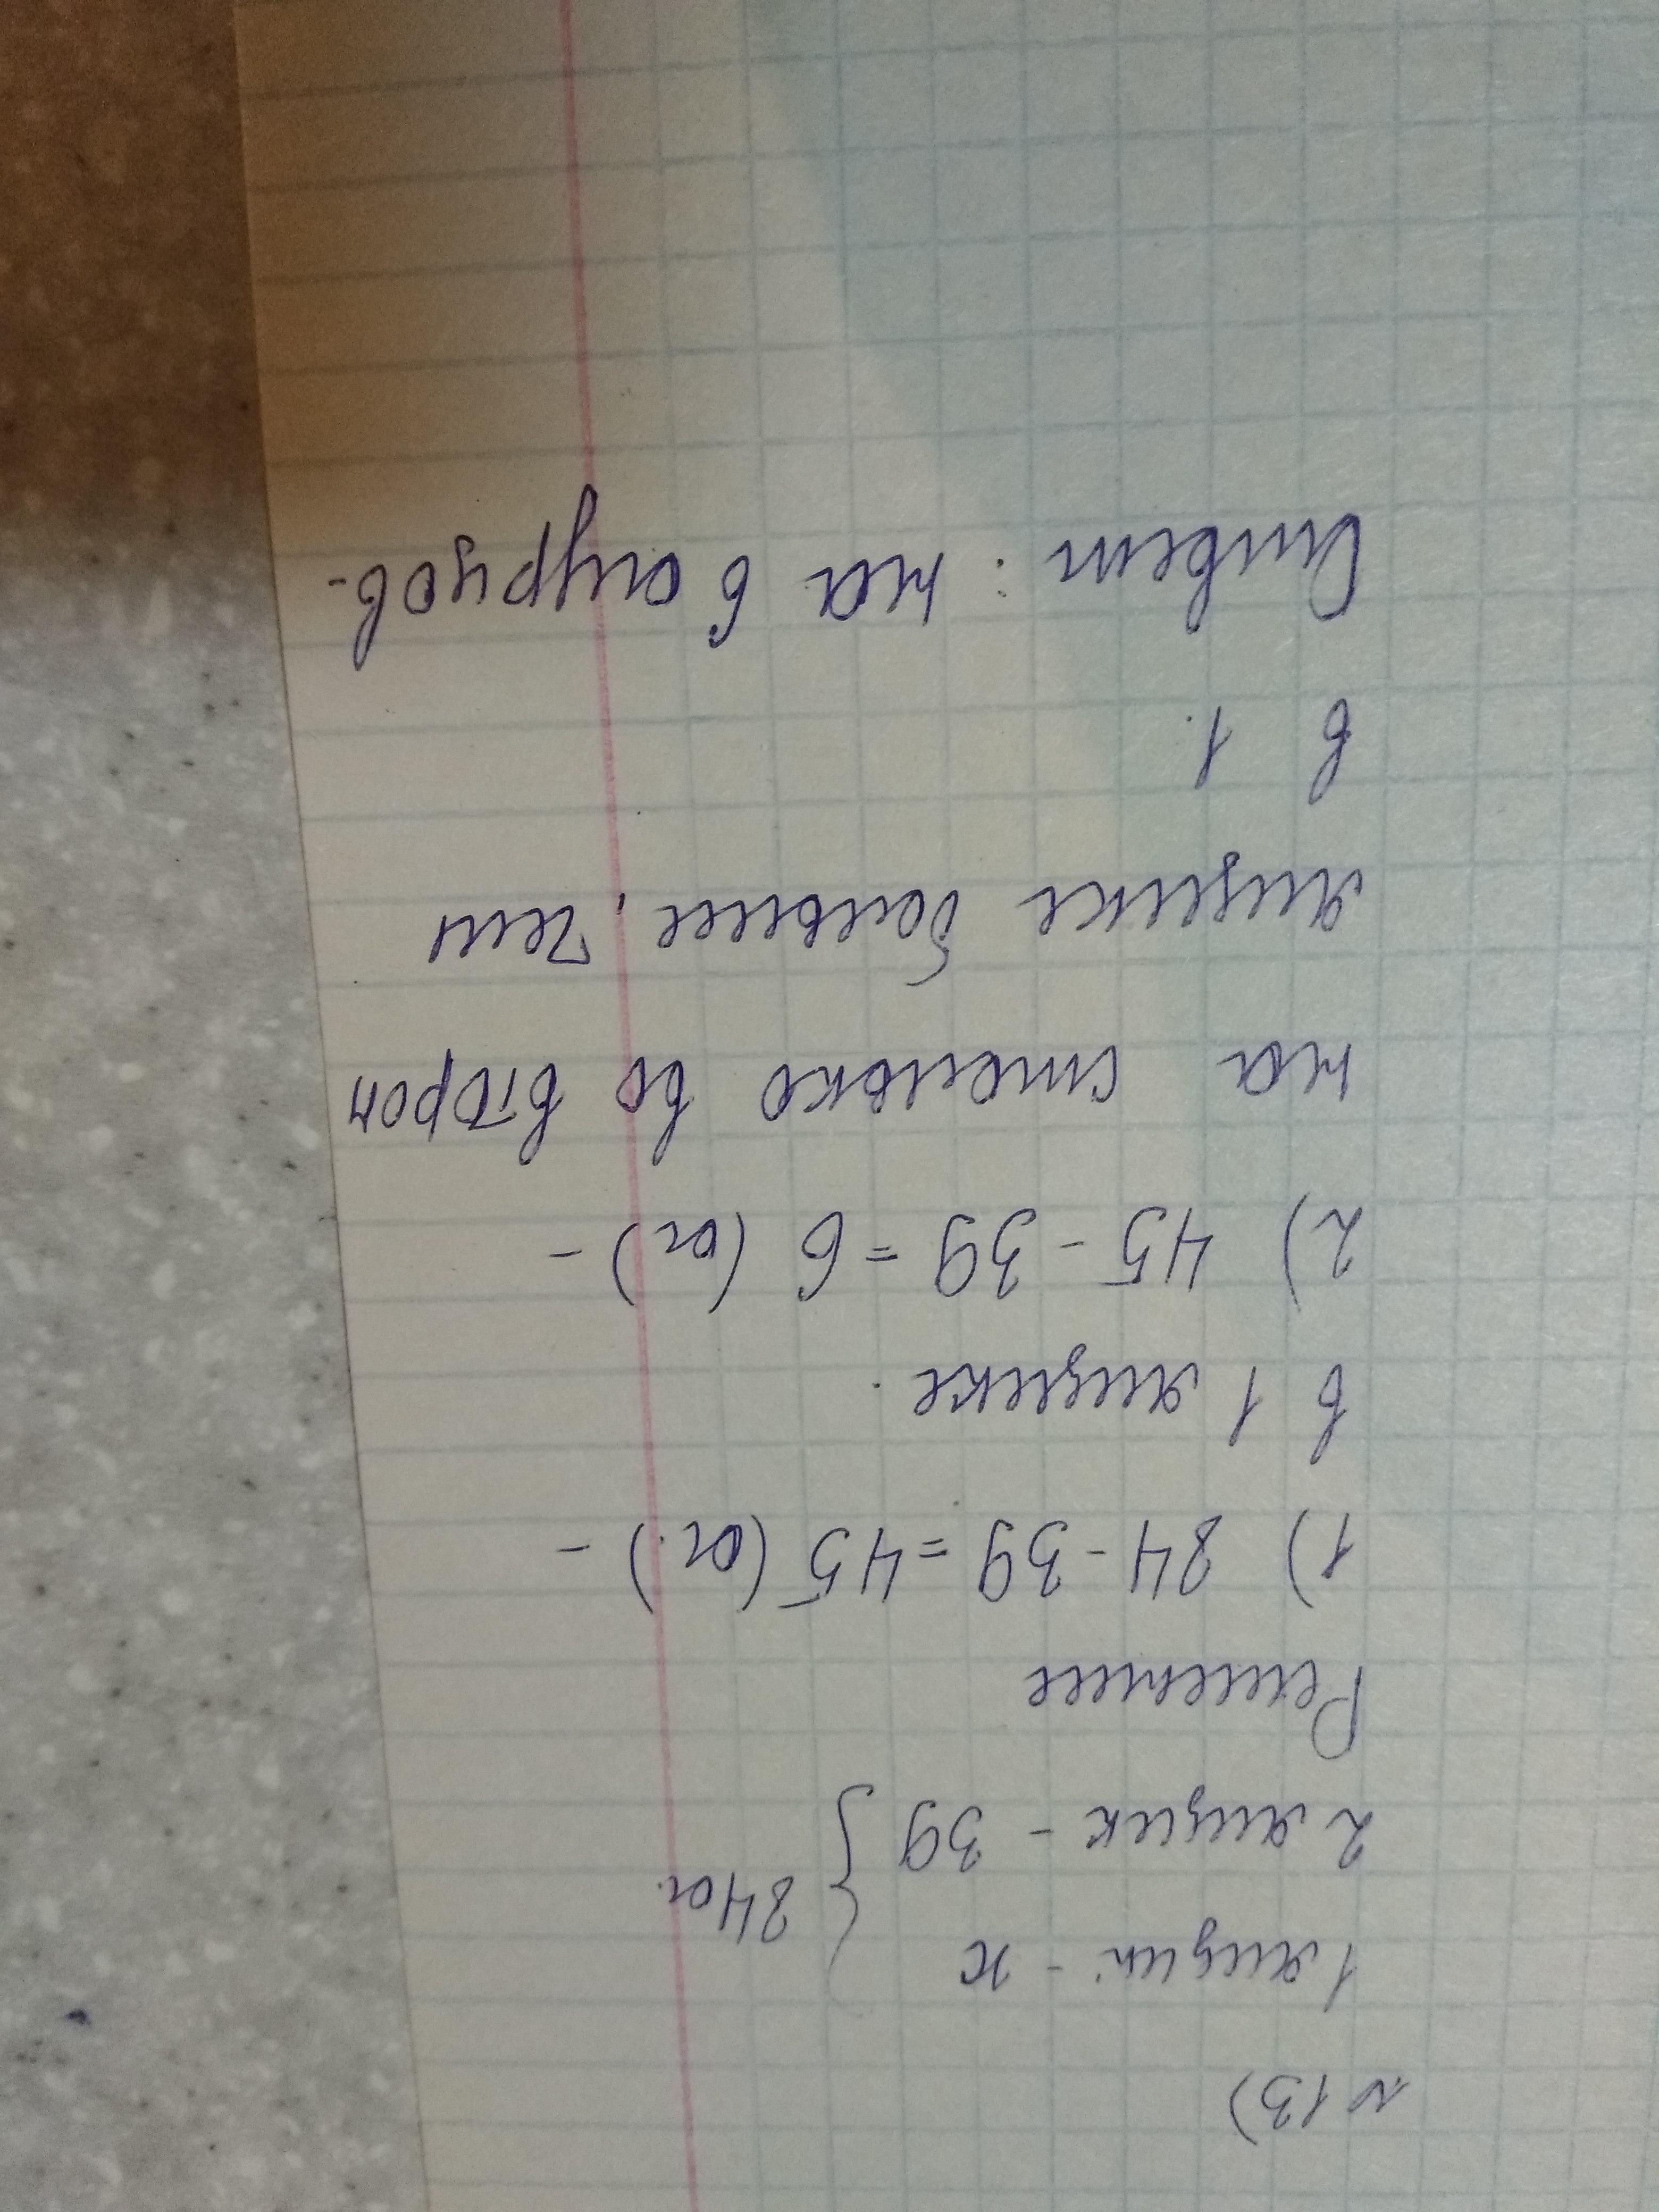 № 13)
1 ящик - x
2 ящик - 39 } 84 ог.
Решение
1) 84 - 39 = 45 (ог.) -
в 1 ящике.
2) 45 - 39 = 6 (ог) -
на столько во втором
ящике больше, чем
в 1.
Ответ: на 6 огурцов.